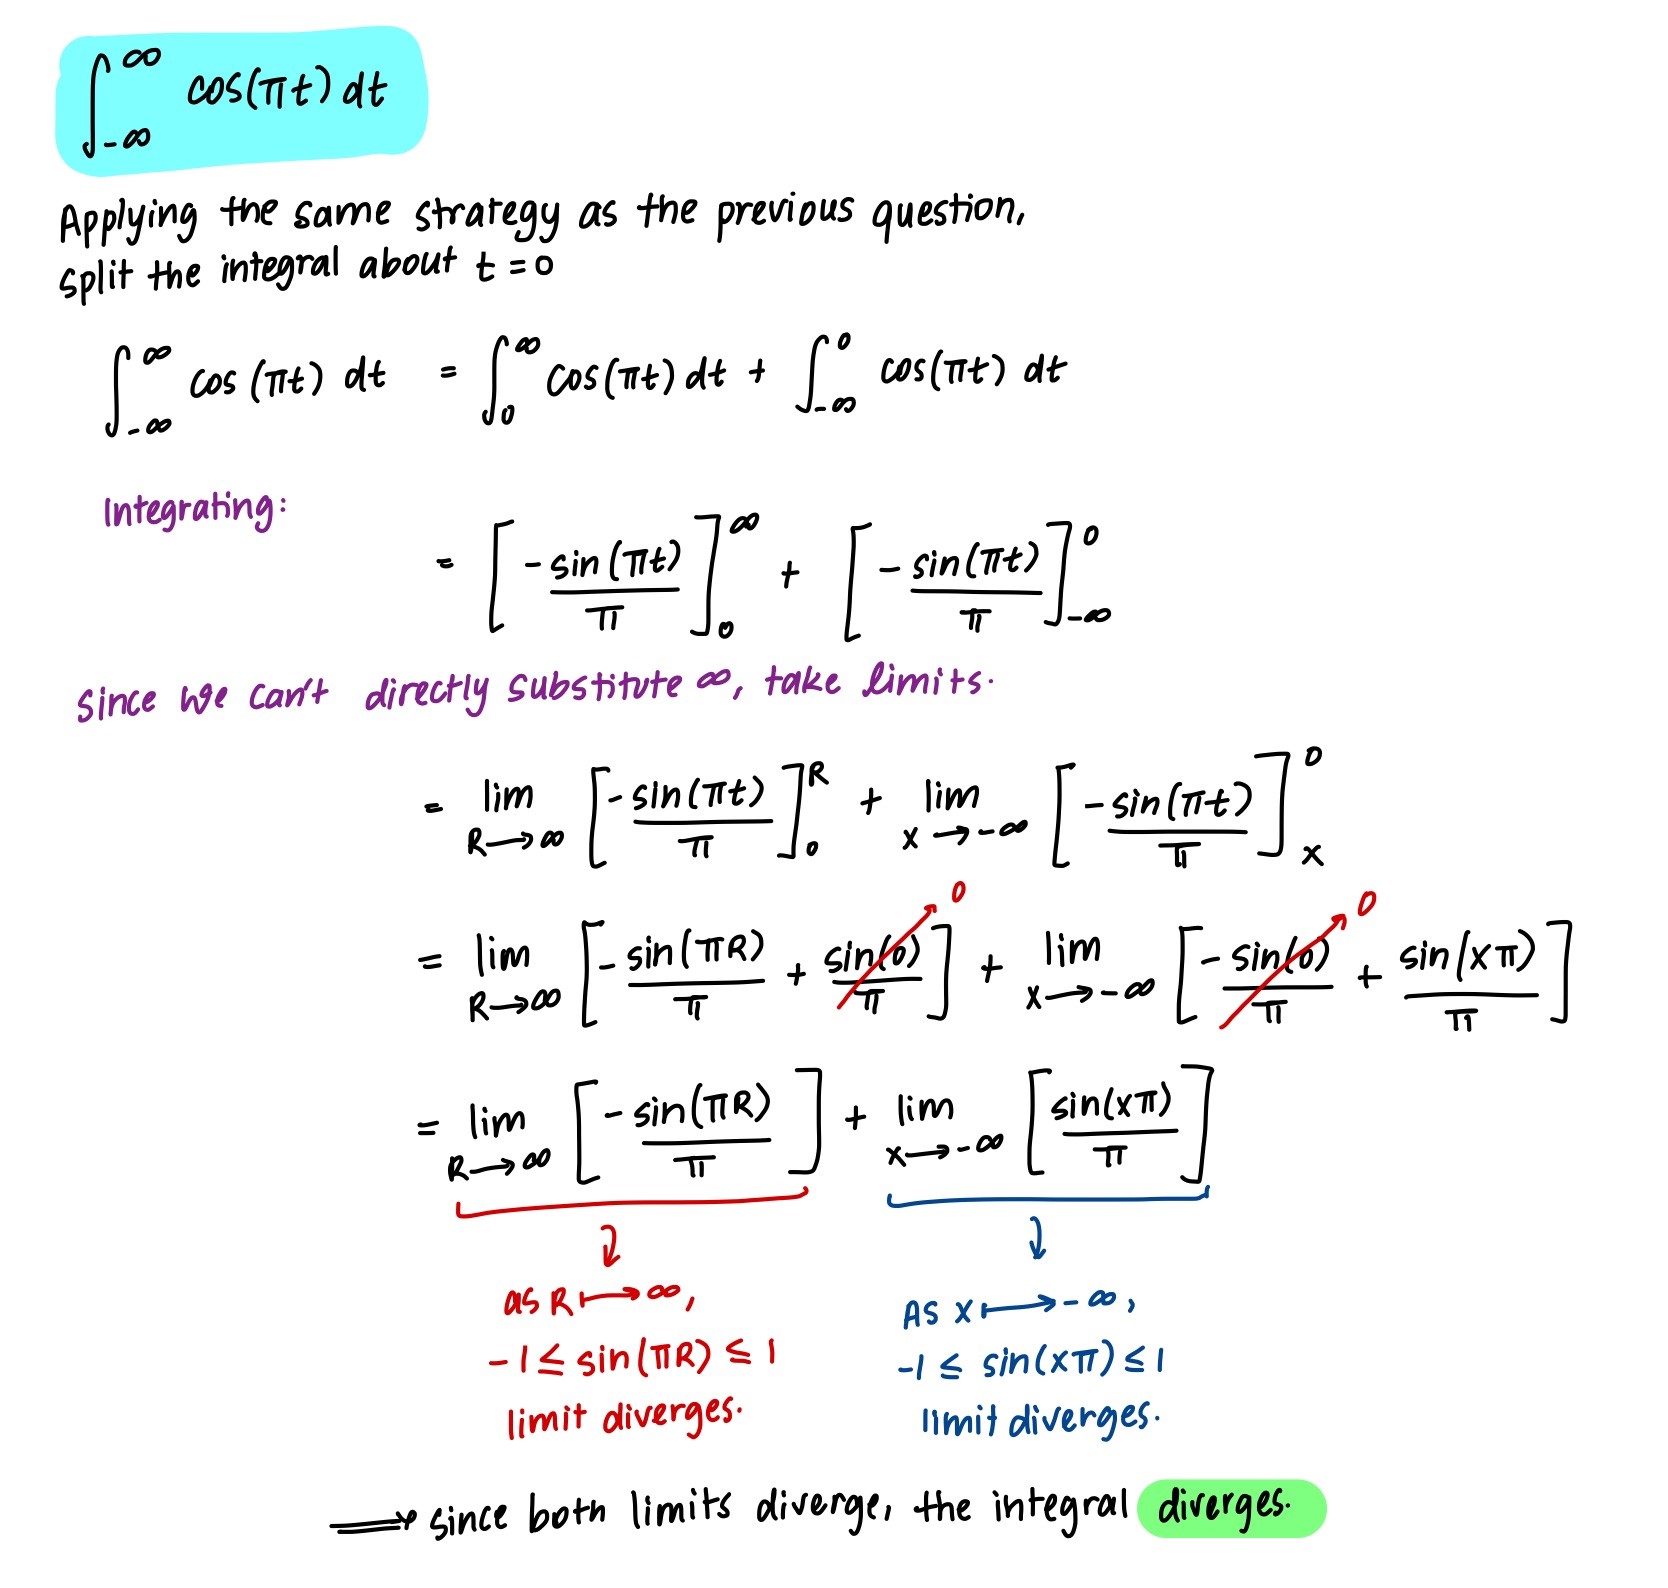 ∫_{-∞}^{∞} cos(πt) dt
Applying the same strategy as the previous question,
split the integral about t = 0
∫_{-∞}^{∞} cos(πt) dt = ∫_{0}^{∞} cos(πt) dt + ∫_{-∞}^{0} cos(πt) dt
Integrating:
= [-sin(πt)/π]_{0}^{∞} + [-sin(πt)/π]_{-∞}^{0}
since we can't directly substitute ∞, take limits.
= lim_{R→∞} [-sin(πt)/π]_{0}^{R} + lim_{x→-∞} [-sin(πt)/π]_{x}^{0}
= lim_{R→∞} [-sin(πR)/π + sin(0)/π → 0] + lim_{x→-∞} [-sin(0)/π → 0 + sin(xπ)/π]
= lim_{R→∞} [-sin(πR)/π] + lim_{x→-∞} [sin(xπ)/π]
as R ↦ ∞,
-1 ≤ sin(πR) ≤ 1
limit diverges.
As x ↦ -∞,
-1 ≤ sin(xπ) ≤ 1
limit diverges.
⟹ since both limits diverge, the integral diverges.